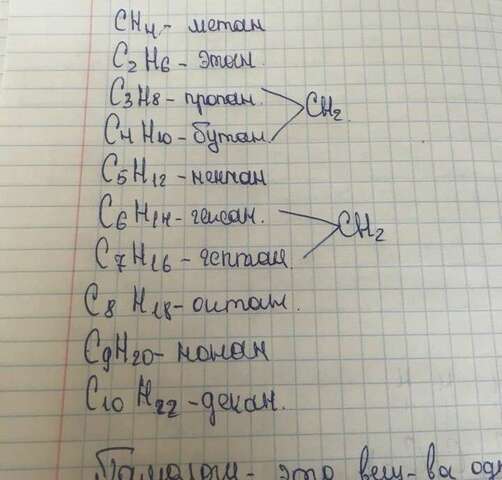 CH4 - метан
C2H6 - этан.
C3H8 - пропан. CH2.
C4H10 - бутан.
C5H12 - пентан
C6H14 - гексан. CH2
C7H16 - гептан.
C8H18 - октан.
C9H20 - нонан
C10H22 - декан.
Гомологи - это вещ-ва одн